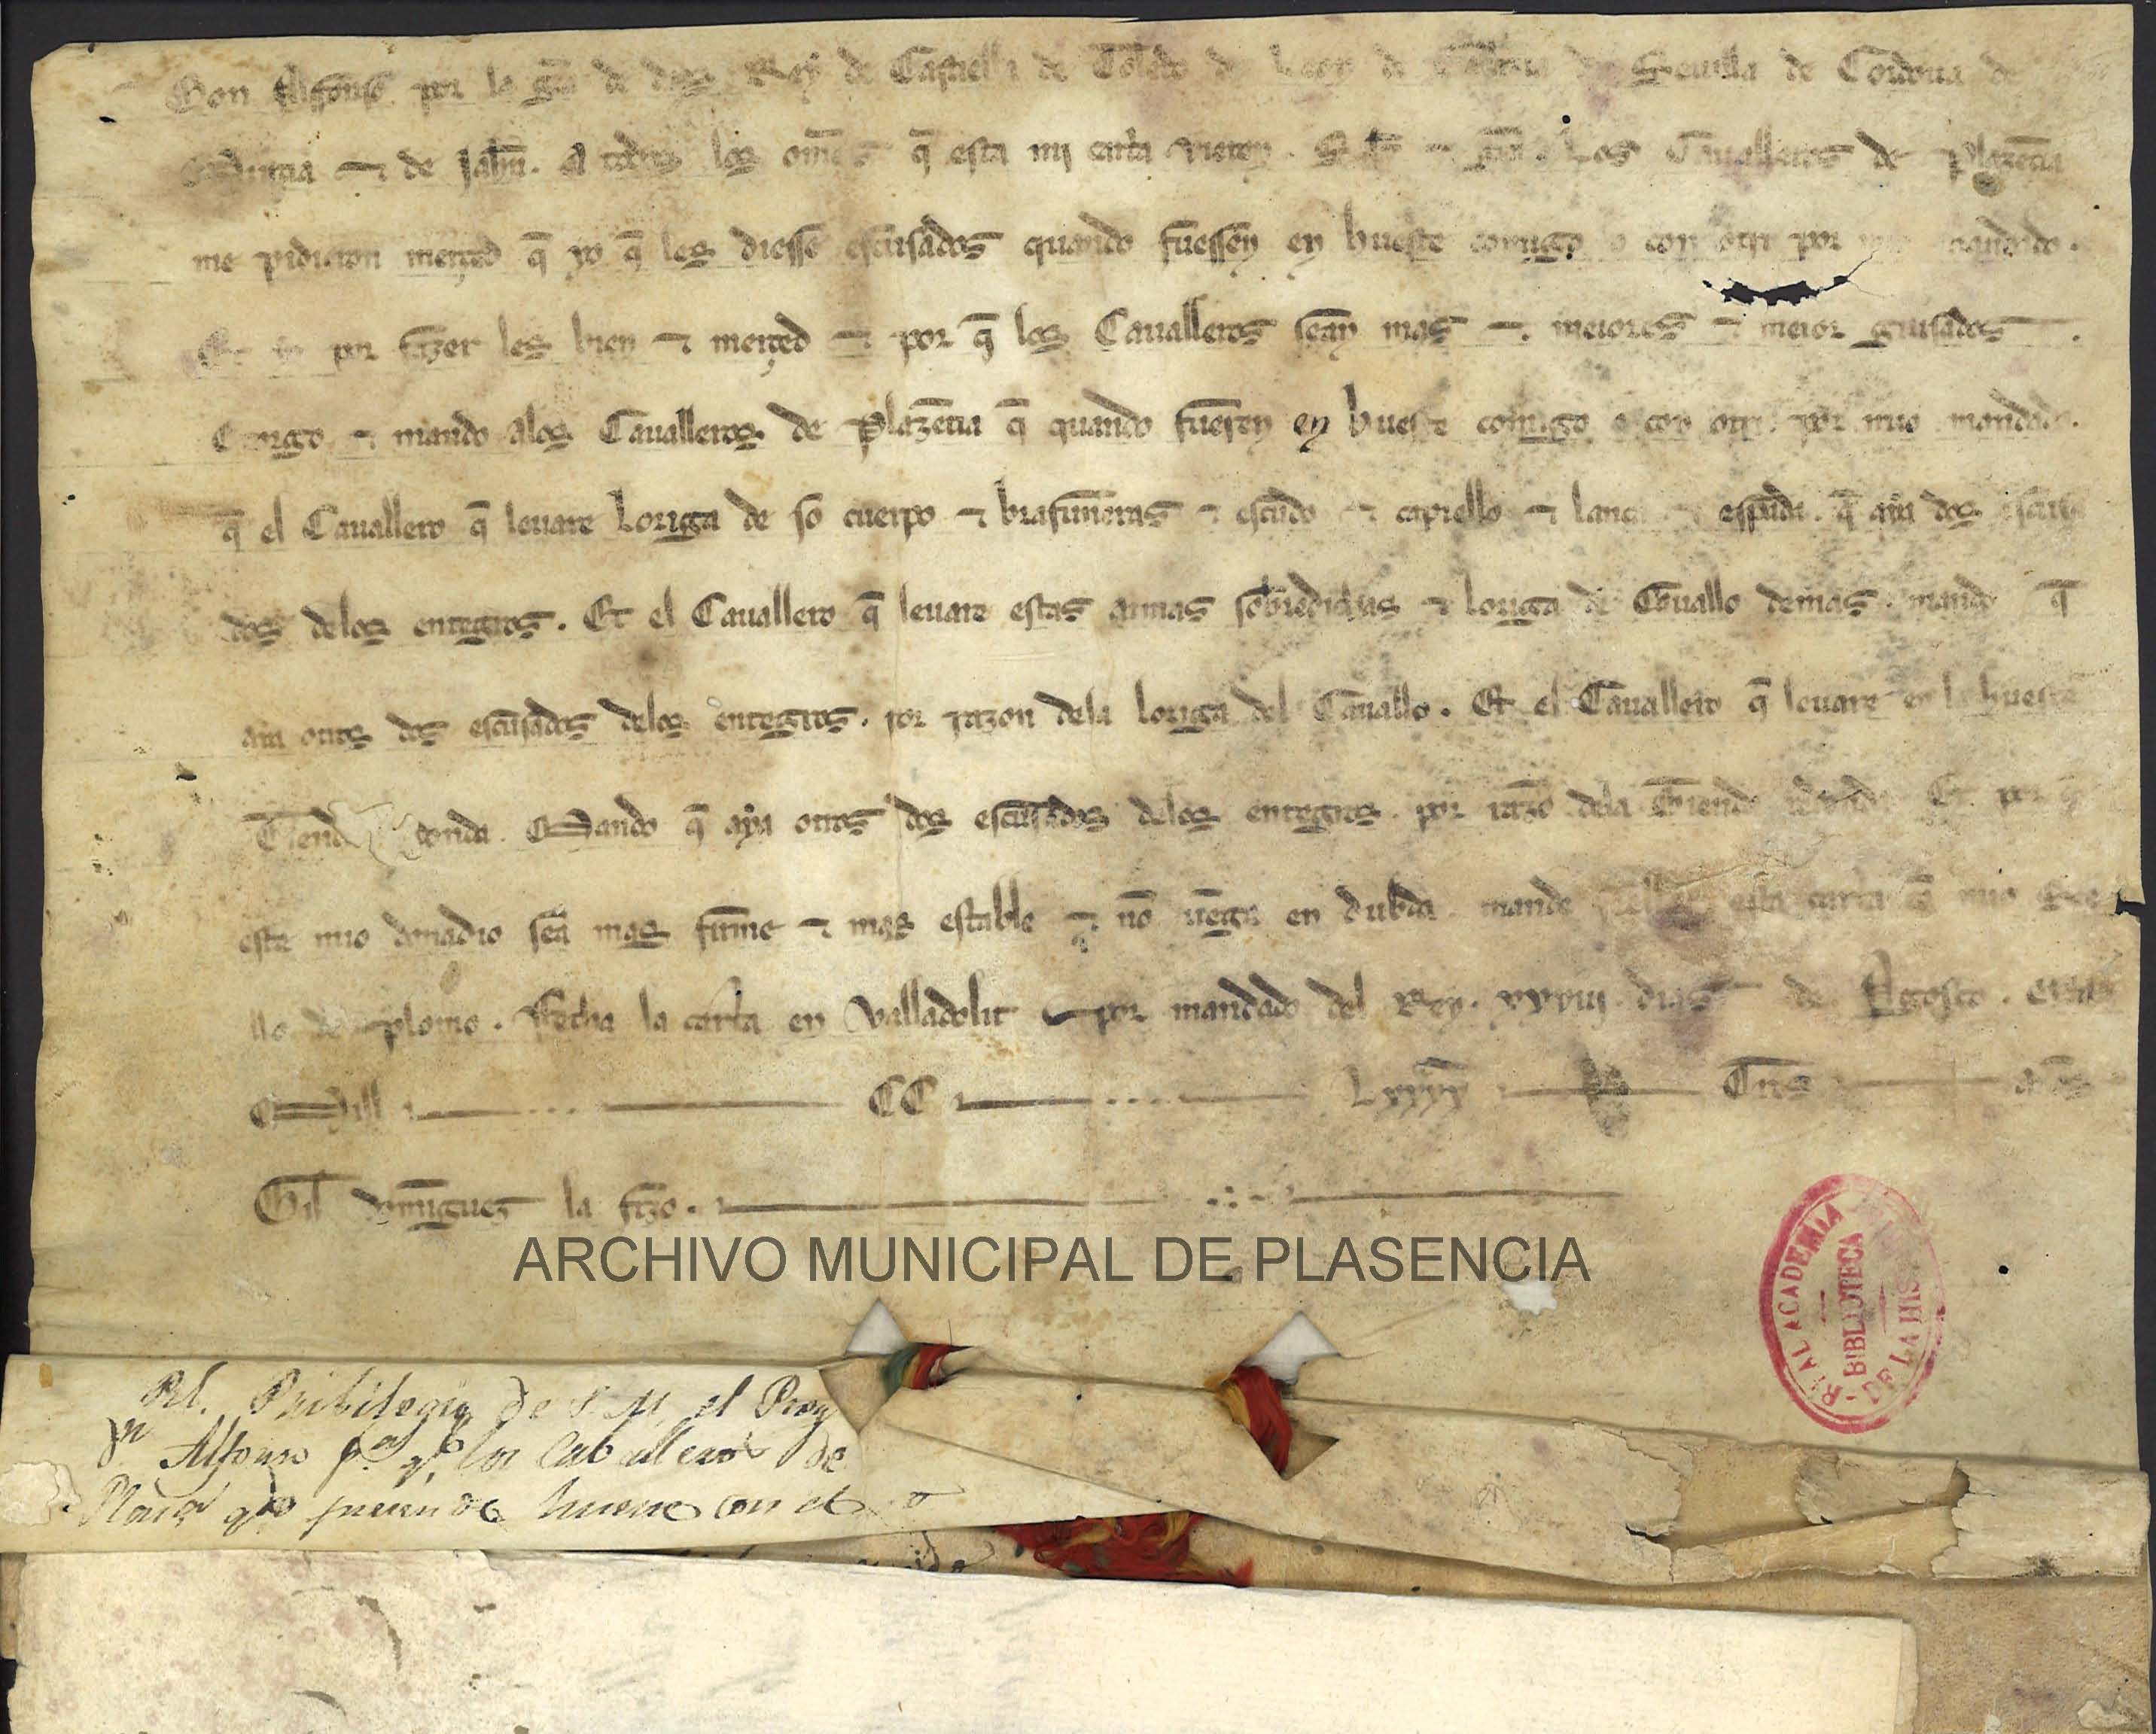 Don Alfonso por la gra de dios Rey de Castiella de Toledo de Leon de Gallizia de Seuilla de Cordoua de
Murcia ⁊ de Jahen. A todos los omes q̃ esta mi carta vieren. los Caualleros de Plazẽcia
me pidieron merçed q̃ yo q̃ les diesse escusados quando fuessen en hueste comigo o con otri por mandado.
Et yo por fazer les bien ⁊ merçed ⁊ por q̃ los Caualleros sean mas ⁊ meiores ⁊ meior guisados.
Otorgo ⁊ mando alos Caualleros de Plazẽcia q̃ quando fueren en hueste comigo o con otri por mio mandado.
q̃ el Cauallero q̃ leuare Loriga de so cuerpo ⁊ brafuneras ⁊ escudo ⁊ capiello ⁊ lança ⁊ espada. q̃ aya dos escusa
dos delos entegros. Et el Cauallero q̃ leuare estas armas sobredichas ⁊ Loriga de Cauallo demas. mando q̃
aya otros dos escusados delos entegros. por razon dela loriga del Cauallo. Et el Cauallero q̃ leuare en la hueste
Tend donda. Mando q̃ aya otros dos escusados delos entegros. por razõ dela Tienda redonda Et por q̃
este mio donadio sea mas firme ⁊ mas estable ⁊ nõ uẽga en dubda. mande esta carta cõ mio see
llo de plomo. Fecha la carta en Valladolit por mandado del Rey. xxviii dias de Agosto. era
Mill CC Lxxxx Tres años
Gil domĩguez la fizo.
ARCHIVO MUNICIPAL DE PLASENCIA
REAL ACADEMIA
BIBLIOTECA
DE LA HIS
Rl. Pribilegio de S. M. el Rey
Dn Alfonso pa. q. los Caballeros de
Placa qdo fueren de hueste con el